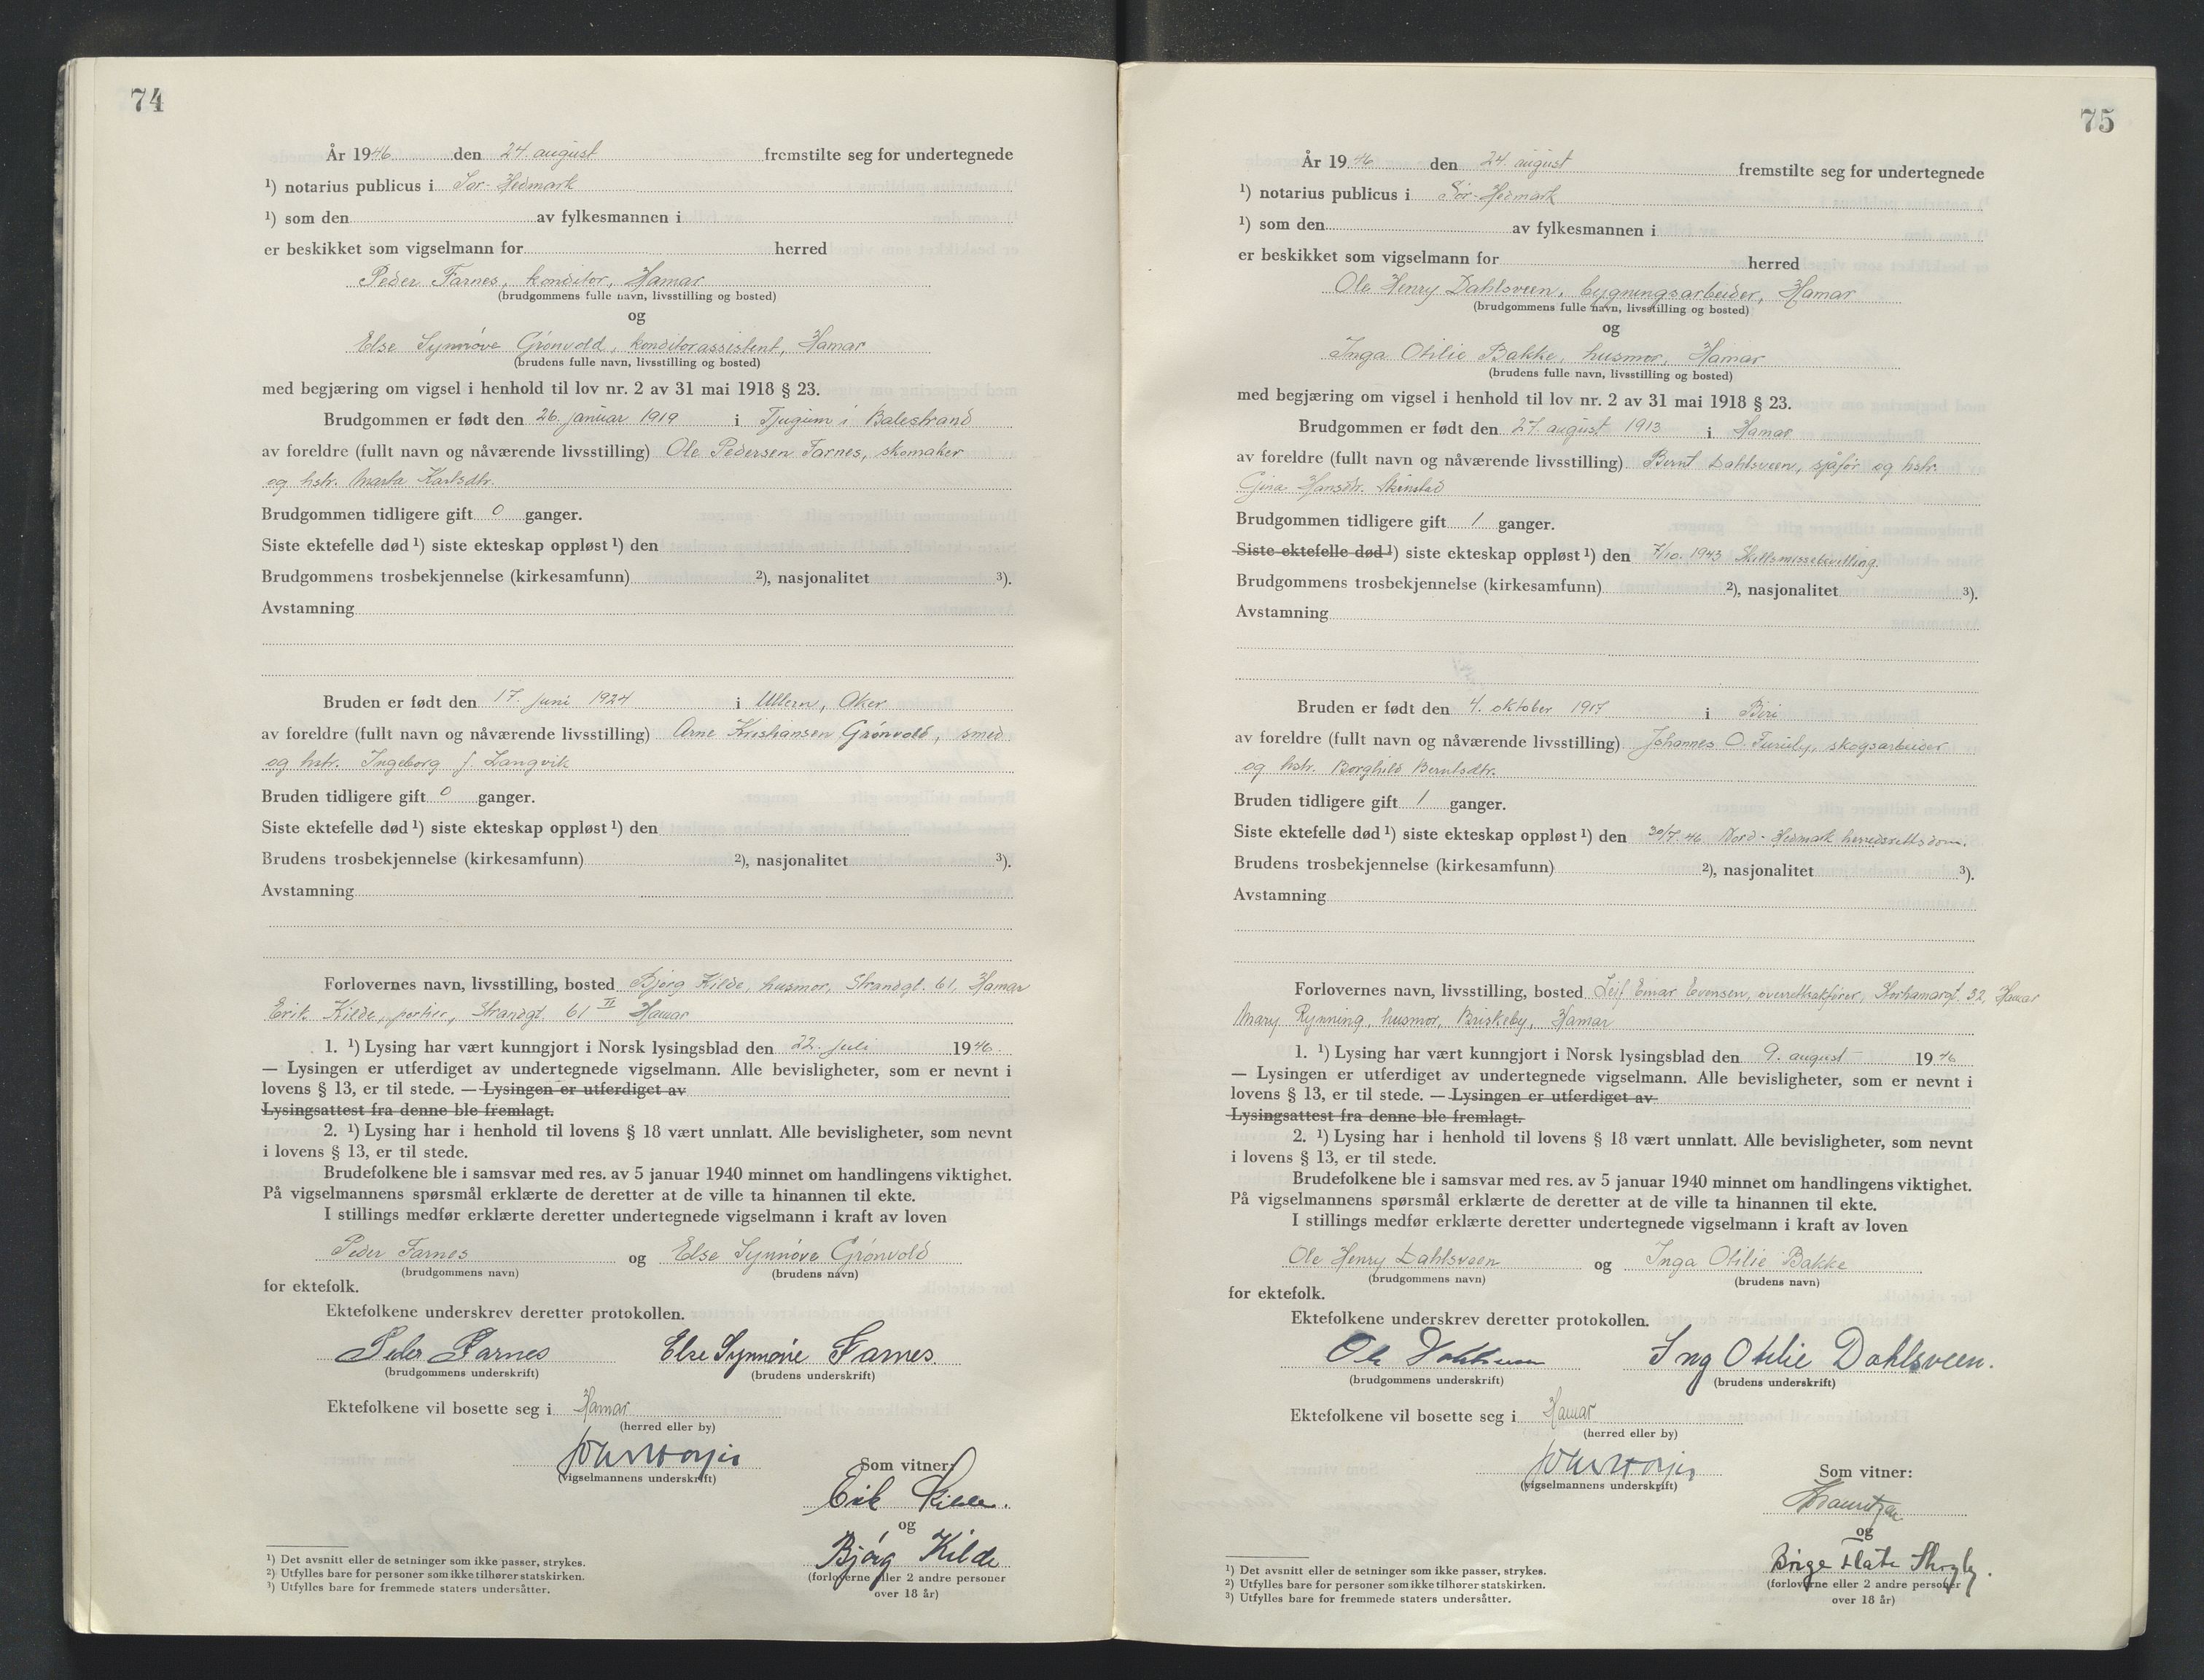 74
År 1946 den 24. august fremstilte seg for undertegnede
¹) notarius publicus i Sør-Hedmark
¹) som den av fylkesmannen i
er beskikket som vigselmann for herred
Peder Farnes, konditor, Hamar
(brudgommens fulle navn, livsstilling og bosted)
og
Else Synnøve Grønvold, konditorassistent, Hamar
(brudens fulle navn, livsstilling og bosted)
med begjæring om vigsel i henhold til lov nr. 2 av 31 mai 1918 § 23.
Brudgommen er født den 26. januar 1919 i Tjugum i Balestrand
av foreldre (fullt navn og nåværende livsstilling) Ole Pedersen Farnes, skomaker
og hstr. Marta Karlsdtr.
Brudgommen tidligere gift 0 ganger.
Siste ektefelle død ¹) siste ekteskap oppløst ¹) den
Brudgommens trosbekjennelse (kirkesamfunn) ²), nasjonalitet ³).
Avstamning
Bruden er født den 17. juni 1924 i Ullern, Aker
av foreldre (fullt navn og nåværende livsstilling) Arne Kristiansen Grønvold, smed
og hstr. Ingeborg J. Langvik
Bruden tidligere gift 0 ganger.
Siste ektefelle død ¹) siste ekteskap oppløst ¹) den
Brudens trosbekjennelse (kirkesamfunn) ²), nasjonalitet ³).
Avstamning
Forlovernes navn, livsstilling, bosted Bjørg Kilde, husmor, Strandgt. 61, Hamar
Erik Kilde, portier, Strandgt. 61 II Hamar
1. ¹) Lysing har vært kunngjort i Norsk lysingsblad den 22. juli 1946.
— Lysingen er utferdiget av undertegnede vigselmann. Alle bevisligheter, som er nevnt i
lovens § 13, er til stede. — Lysingen er utferdiget av
Lysingsattest fra denne ble fremlagt.
2. ¹) Lysing har i henhold til lovens § 18 vært unnlatt. Alle bevisligheter, som nevnt
i lovens § 13, er til stede.
Brudefolkene ble i samsvar med res. av 5 januar 1940 minnet om handlingens viktighet.
På vigselmannens spørsmål erklærte de deretter at de ville ta hinannen til ekte.
I stillings medfør erklærte deretter undertegnede vigselmann i kraft av loven
Peder Farnes og Else Synnøve Grønvold
(brudgommens navn) (brudens navn)
for ektefolk.
Ektefolkene underskrev deretter protokollen.
Peder Farnes Else Synnøve Farnes
(brudgommens underskrift) (brudens underskrift)
Ektefolkene vil bosette seg i Hamar
(herred eller by)
(vigselmannens underskrift)
Som vitner:
Erik Kilde.
og
Bjørg Kilde
(forloverne eller 2 andre personer
over 18 år)
¹) Det avsnitt eller de setninger som ikke passer, strykes.
²) Utfylles bare for personer som ikke tilhører statskirken.
³) Utfylles bare for fremmede staters undersåtter.
75
År 1946 den 24. august fremstilte seg for undertegnede
¹) notarius publicus i Sør-Hedmark
¹) som den av fylkesmannen i
er beskikket som vigselmann for herred
Ole Henry Dahlsveen, bygningsarbeider, Hamar
(brudgommens fulle navn, livsstilling og bosted)
og
Inga Otilie Bakke, husmor, Hamar
(brudens fulle navn, livsstilling og bosted)
med begjæring om vigsel i henhold til lov nr. 2 av 31 mai 1918 § 23.
Brudgommen er født den 27. august 1913 i Hamar
av foreldre (fullt navn og nåværende livsstilling) Bernt Dahlsveen, sjåfør og hstr.
Gina Hansdtr.
Brudgommen tidligere gift 1 ganger.
Siste ektefelle død ¹) siste ekteskap oppløst ¹) den 7/10. 1943 Skilsmissebevilling.
Brudgommens trosbekjennelse (kirkesamfunn) ²), nasjonalitet ³).
Avstamning
Bruden er født den 4. oktober 1917 i Biri
av foreldre (fullt navn og nåværende livsstilling) Johannes O. skogsarbeider
og hstr. Borghild Berntsdtr.
Bruden tidligere gift 1 ganger.
Siste ektefelle død ¹) siste ekteskap oppløst ¹) den 30/7. 46 Nord-Hedmark herredsrettsdom.
Brudens trosbekjennelse (kirkesamfunn) ²), nasjonalitet ³).
Avstamning
Forlovernes navn, livsstilling, bosted Leif Einar Evensen, overrettssakfører, Storhamargt. 32, Hamar
Mary Rynning, husmor, Briskeby, Hamar
1. ¹) Lysing har vært kunngjort i Norsk lysingsblad den 9. august 1946
— Lysingen er utferdiget av undertegnede vigselmann. Alle bevisligheter, som er nevnt i
lovens § 13, er til stede. — Lysingen er utferdiget av
Lysingsattest fra denne ble fremlagt.
2. ¹) Lysing har i henhold til lovens § 18 vært unnlatt. Alle bevisligheter, som nevnt
i lovens § 13, er til stede.
Brudefolkene ble i samsvar med res. av 5 januar 1940 minnet om handlingens viktighet.
På vigselmannens spørsmål erklærte de deretter at de ville ta hinannen til ekte.
I stillings medfør erklærte deretter undertegnede vigselmann i kraft av loven
Ole Henry Dahlsveen og Inga Otilie Bakke
(brudgommens navn) (brudens navn)
for ektefolk.
Ektefolkene underskrev deretter protokollen.
Ole Dahlsveen Ing Otilie Dahlsveen.
(brudgommens underskrift) (brudens underskrift)
Ektefolkene vil bosette seg i Hamar
(herred eller by)
(vigselmannens underskrift)
Som vitner:
og
(forloverne eller 2 andre personer
over 18 år)
¹) Det avsnitt eller de setninger som ikke passer, strykes.
²) Utfylles bare for personer som ikke tilhører statskirken.
³) Utfylles bare for fremmede staters undersåtter.